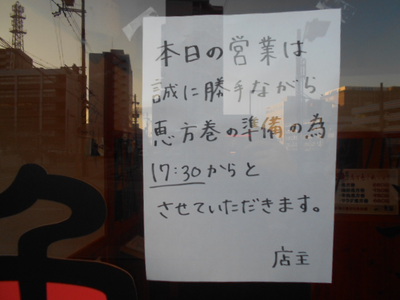 本日の営業は
誠に勝手ながら
恵方巻の準備の為
17:30からと
させていただきます。
店主